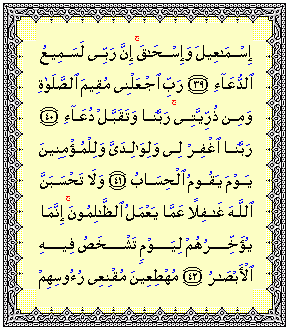 إِسْمَٰعِيلَ وَإِسْحَٰقَ ۚ إِنَّ رَبِّى لَسَمِيعُ
ٱلدُّعَآءِ ﴿٣٩﴾ رَبِّ ٱجْعَلْنِى مُقِيمَ ٱلصَّلَوٰةِ
وَمِن ذُرِّيَّتِى ۚ رَبَّنَا وَتَقَبَّلْ دُعَآءِ ﴿٤٠﴾
رَبَّنَا ٱغْفِرْ لِى وَلِوَٰلِدَىَّ وَلِلْمُؤْمِنِينَ
يَوْمَ يَقُومُ ٱلْحِسَابُ ﴿٤١﴾ وَلَا تَحْسَبَنَّ
ٱللَّهَ غَٰفِلًا عَمَّا يَعْمَلُ ٱلظَّٰلِمُونَ ۚ إِنَّمَا
يُؤَخِّرُهُمْ لِيَوْمٍ تَشْخَصُ فِيهِ
ٱلْأَبْصَٰرُ ﴿٤٢﴾ مُهْطِعِينَ مُقْنِعِى رُءُوسِهِمْ